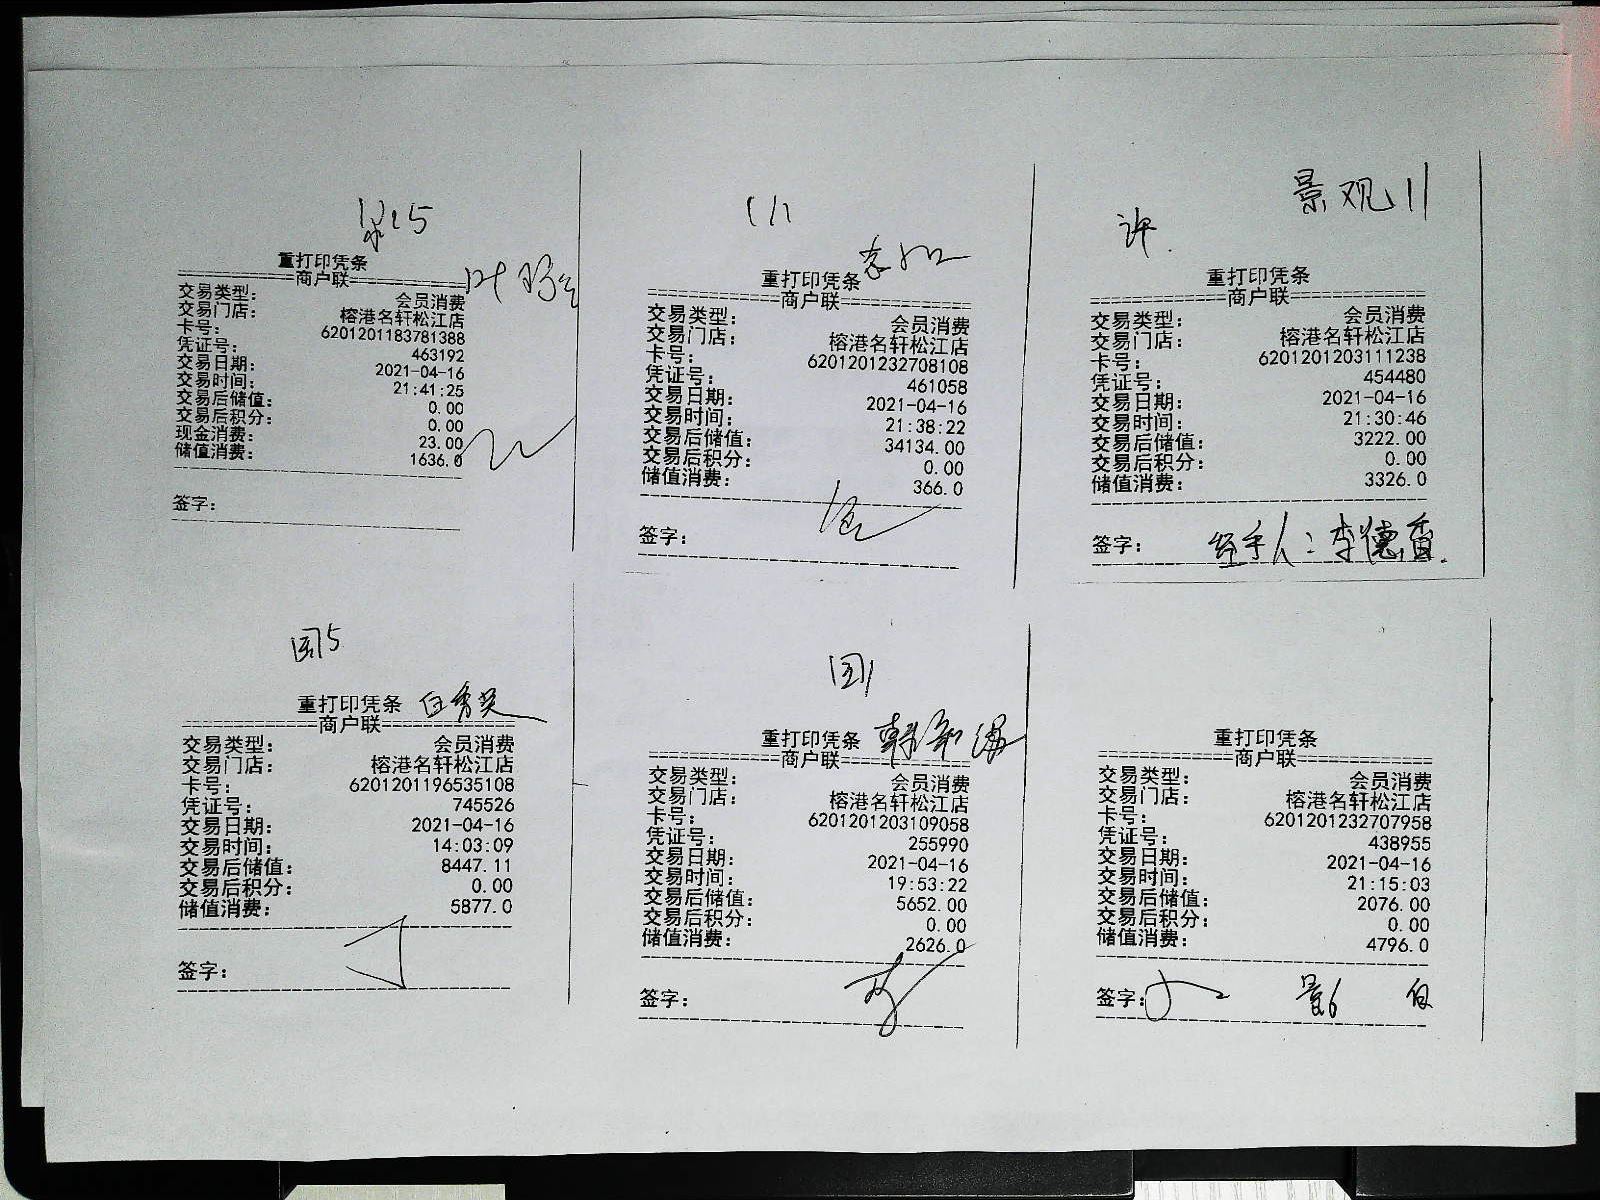 重打印凭条
商户联
交易类型： 会员消费
交易门店： 榕港名轩松江店
卡号： 6201201183781388
凭证号： 463192
交易日期： 2021-04-16
交易时间： 21:41:25
交易后储值： 0.00
交易后积分： 0.00
现金消费： 23.00
储值消费： 1636.0
签字：
重打印凭条
商户联
交易类型： 会员消费
交易门店： 榕港名轩松江店
卡号： 6201201232708108
凭证号： 461058
交易日期： 2021-04-16
交易时间： 21:38:22
交易后储值： 34134.00
交易后积分： 0.00
储值消费： 366.0
签字：
景观11
许
重打印凭条
商户联
交易类型： 会员消费
交易门店： 榕港名轩松江店
卡号： 6201201203111238
凭证号： 454480
交易日期： 2021-04-16
交易时间： 21:30:46
交易后储值： 3222.00
交易后积分： 0.00
储值消费： 3326.0
签字： 经手人：李德香
重打印凭条 白秀英
商户联
交易类型： 会员消费
交易门店： 榕港名轩松江店
卡号： 6201201196535108
凭证号： 745526
交易日期： 2021-04-16
交易时间： 14:03:09
交易后储值： 8447.11
交易后积分： 0.00
储值消费： 5877.0
签字：
重打印凭条
商户联
交易类型： 会员消费
交易门店： 榕港名轩松江店
卡号： 6201201203109058
凭证号： 255990
交易日期： 2021-04-16
交易时间： 19:53:22
交易后储值： 5652.00
交易后积分： 0.00
储值消费： 2626.0
签字：
重打印凭条
商户联
交易类型： 会员消费
交易门店： 榕港名轩松江店
卡号： 6201201232707958
凭证号： 438955
交易日期： 2021-04-16
交易时间： 21:15:03
交易后储值： 2076.00
交易后积分： 0.00
储值消费： 4796.0
签字：